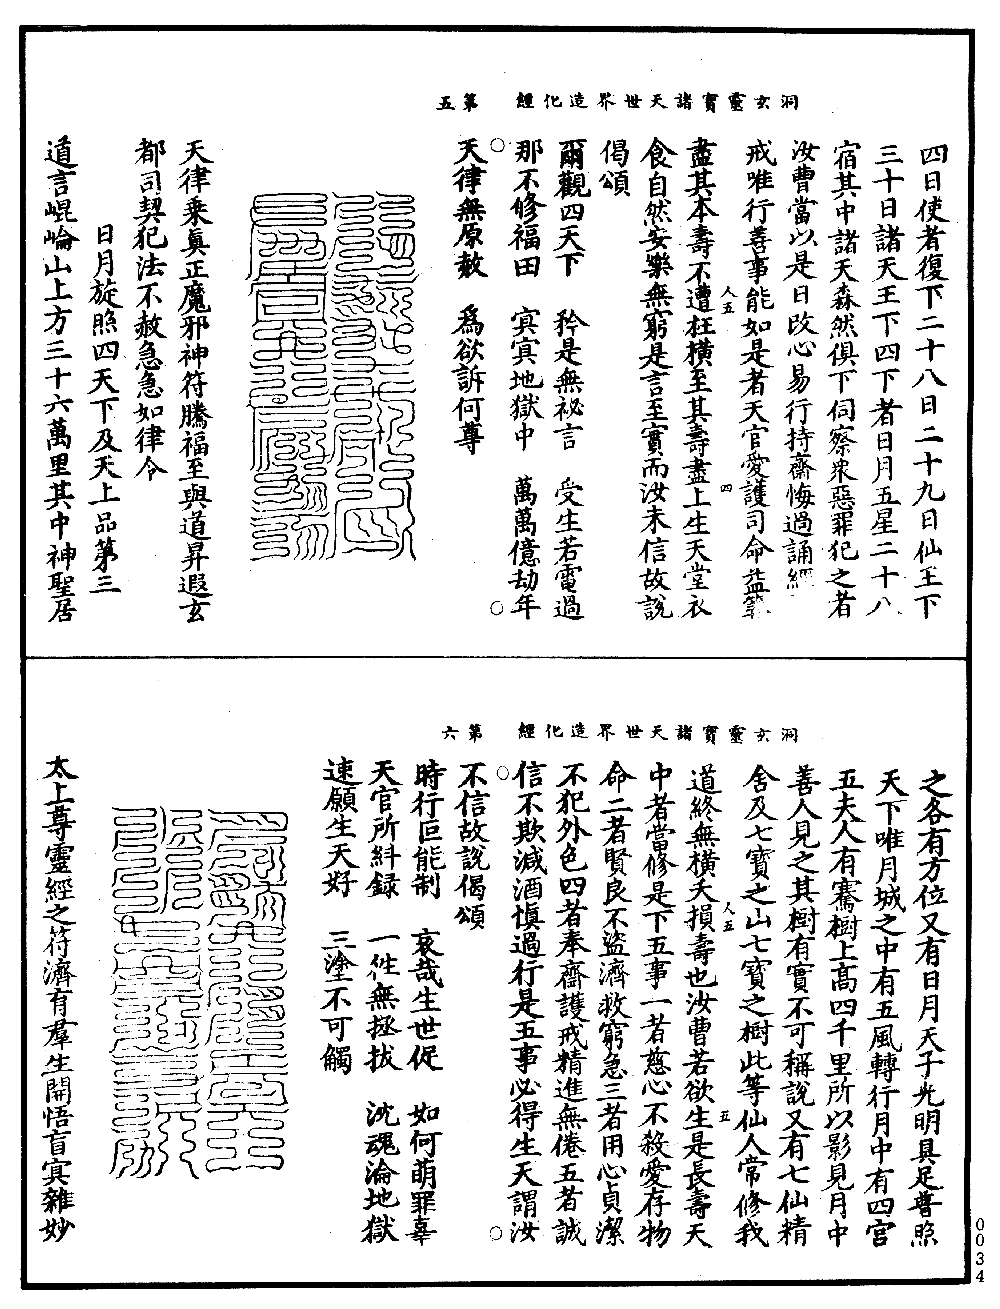 洞玄靈寶諸天世界造化經　第五
四日使者復下二十八日二十九日仙王下
三十日諸天王下四下者日月五星二十八
宿其中諸天森然俱下伺察衆惡罪犯之者
汝曹當以是日改心易行持齋悔過誦經
戒唯行善事能如是者天官愛護司命益筭
人五
四
盡其本壽不遭枉橫至其壽盡上生天堂衣
食自然安樂無窮是言至實而汝未信故說
偈頌
爾觀四天下　矜是無祕言　受生若電過
那不修福田　冥冥地獄中　萬萬億劫年
天律無原赦　爲欲訴何尊
天律乘眞正魔邪神符騰福至與道昇遐玄
都司契犯法不赦急急如律令
日月旋照四天下及天上品第三
道言崐崘山上方三十六萬里其中神聖居
洞玄靈寶諸天世界造化經　第六
之各有方位又有日月天子光明具足普照
天下唯月城之中有五風轉行月中有四宮
五夫人有騫樹上高四千里所以影見月中
善人見之其樹有實不可稱說又有七仙精
舍及七寶之山七寶之樹此等仙人常修我
人五
五
道終無橫夭損壽也汝曹若欲生是長壽天
中者當修是下五事一者慈心不殺愛存物
命二者賢良不盜濟救窮急三者用心貞潔
不犯外色四者奉齋護戒精進無倦五者誠
信不欺減酒愼過行是五事必得生天謂汝
不信故說偈頌
時行叵能制　哀哉生世促　如何萌罪辜
天官所糾録　一性無拯拔　沈魂淪地獄
速願生天好　三塗不可觸
太上尊靈經之符濟有羣生開悟盲冥雜妙
0034